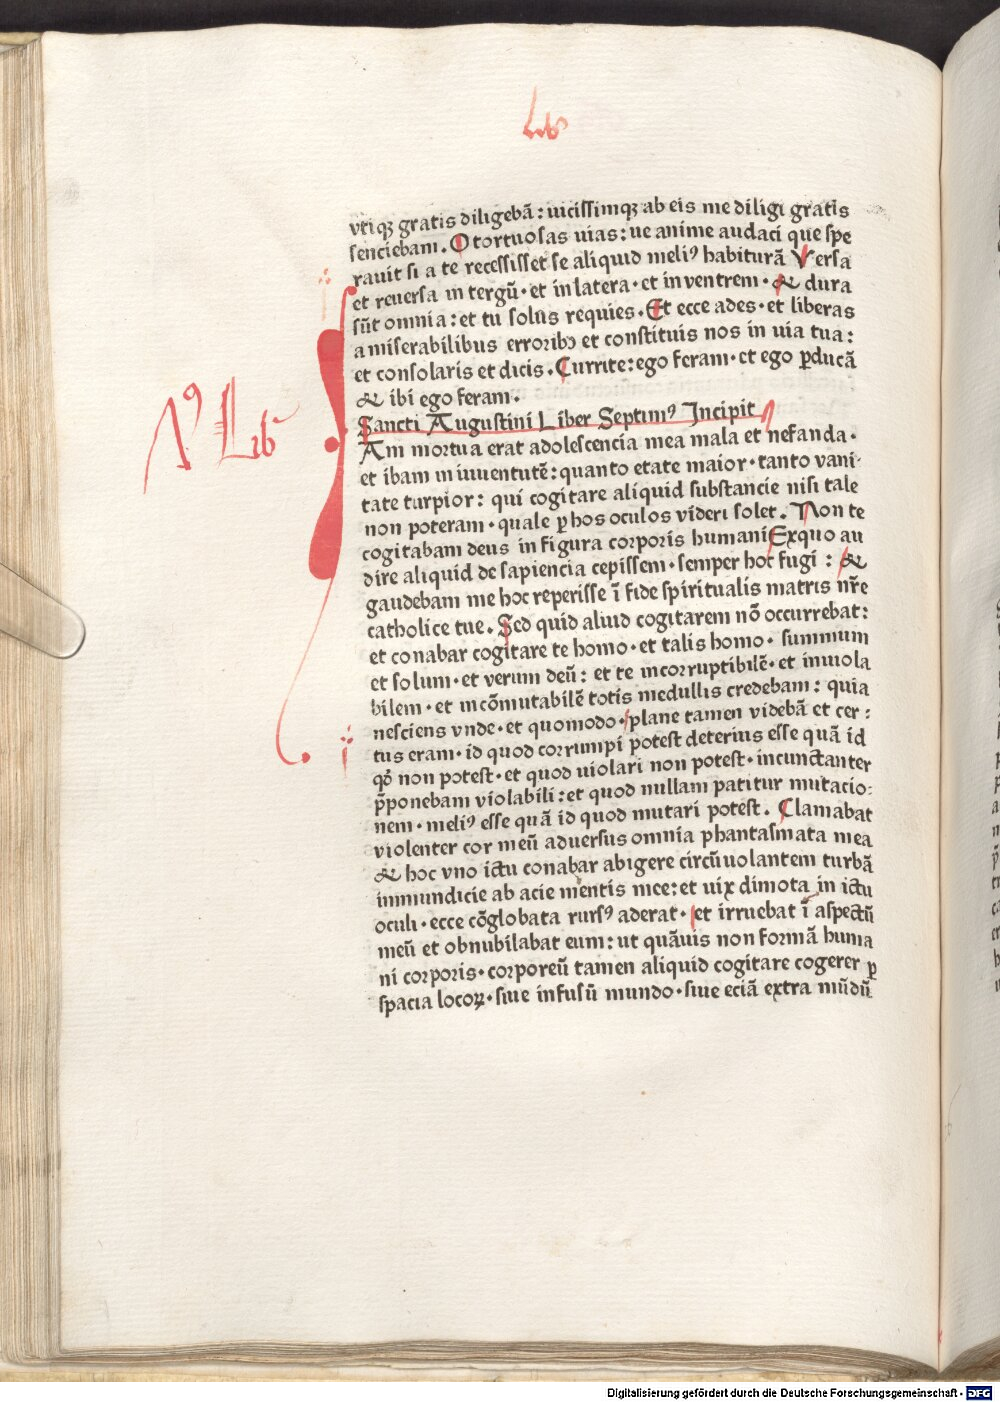 Lib⁹
vtiqꝫ gratis diligebã : uicissimqꝫ ab eis me diligi gratis
senciebam . O tortuosas uias : ue anime audaci que spe
rauit si a te recessisset se aliquid meli⁹ habiturã Versa
et reuersa in tergũ · et in latera · et in ventrem · & dura
sũt omnia : et tu solus requies . Et ecce ades · et liberas
a miserabilibus erroribꝰ et constituis nos in uia tua :
et consolaris et dicis . Currite : ego feram · et ego ꝑducã
& ibi ego feram .
Sancti Augustini Liber Septim⁹ Incipit
Am mortua erat adolescencia mea mala et nefanda ·
et ibam in iuuentutẽ : quanto etate maior · tanto vani·
tate turpior : qui cogitare aliquid substancie nisi tale
non poteram · quale ꝑ hos oculos videri solet . Non te
cogitabam deus in figura corporis humani Exquo au
dire aliquid de sapiencia cepissem · semper hoc fugi : &
gaudebam me hoc reperisse ĩ fide spiritualis matris nr̃e
catholice tue . Sed quid aliud cogitarem nõ occurrebat :
et conabar cogitare te homo · et talis homo · summum
et solum · et verum deũ : et te incorruptibilẽ · et inuiola
bilem · et incõmutabilẽ totis medullis credebam : quia
nesciens vnde · et quomodo · plane tamen videbã et cer :
tus eram · id quod corrumpi potest deterius esse quã id
qđ non potest · et quod uiolari non potest · incunctanter
p̃ponebam violabili : et quod nullam patitur mutacio:
nem · meli⁹ esse quã id quod mutari potest . Clamabat
violenter cor meũ aduersus omnia phantasmata mea
& hoc vno ictu conabar abigere circũuolantem turbã
inmundicie ab acie mentis mee : et uix dimota in ictu
oculi · ecce cõglobata rurs⁹ aderat · et irruebat ĩ aspectũ
meũ et obnubilabat eum : ut quãuis non formã huma
ni corporis · corporeũ tamen aliquid cogitare cogerer ꝑ
spacia locoꝝ · siue infusũ mundo · siue eciã extra mũdũ
Digitalisierung gefördert durch die Deutsche Forschungsgemeinschaft - DFG